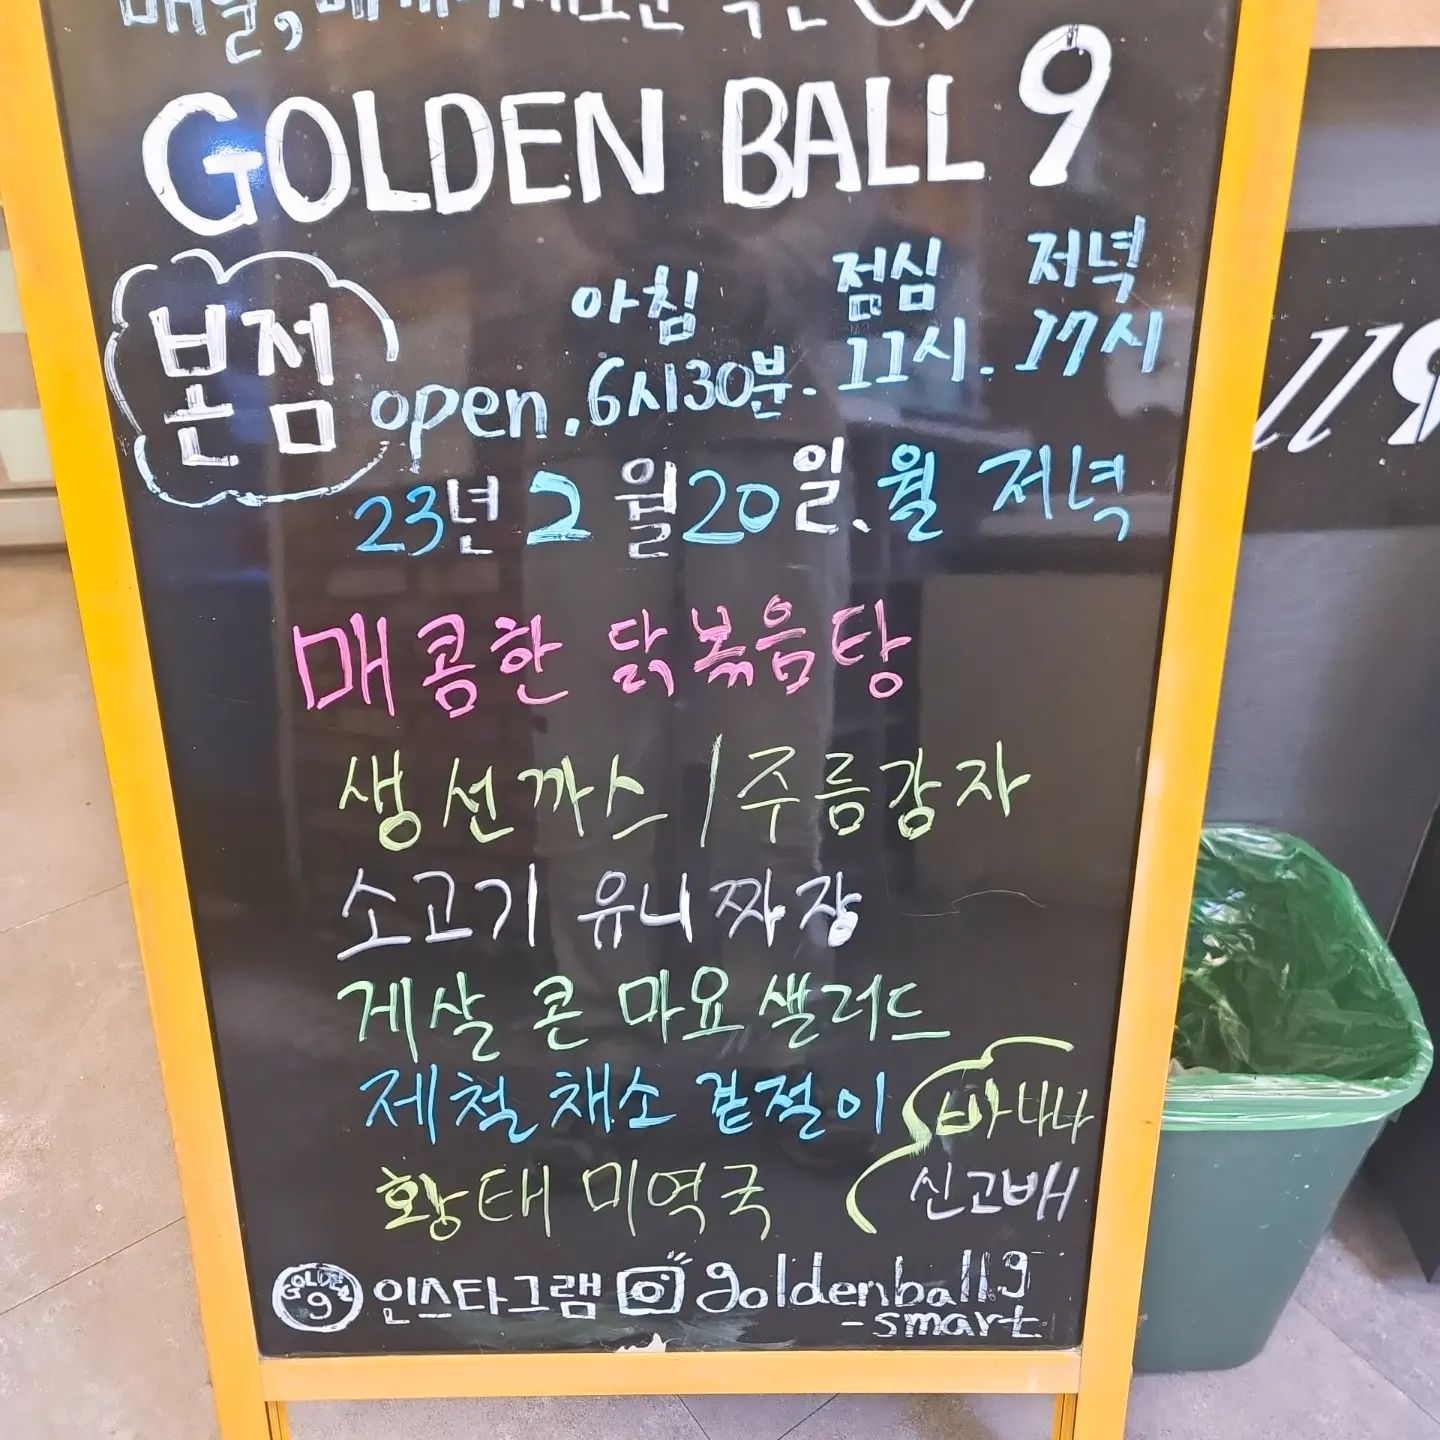 GOLDEN BALL 9
본점
아침 점심 저녁
open. 6시30분. 11시. 17시
23년 2월 20일. 월 저녁
매콤한 닭볶음탕
생선까스 / 주름감자
소고기 유니짜장
게살 콘 마요 샐러드
제철 채소 겉절이
바나나
황태 미역국
신고배
GOLDEN 9 인스타그램 goldenball9
-smart